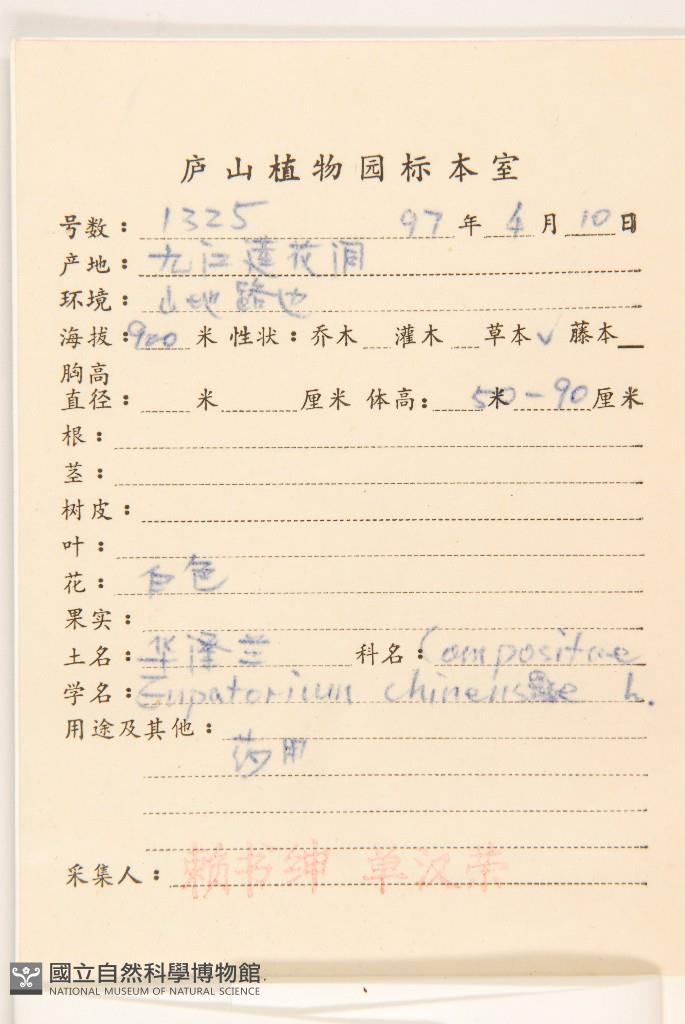 庐山植物园标本室
号数： 1325 97年4月10日
产地： 九江莲花洞
环境： 山地路边
海拔：900 米 性状：乔木 灌木 草本✓ 藤本
胸高
直径： 米 厘米 体高： 米50-90厘米
根：
茎：
树皮：
叶：
花： 白色
果实：
土名： 华泽兰 科名： Compositae
学名： Eupatorium chinense L.
用途及其他：
药用
采集人： 赖书绅 单汉荣
國立自然科學博物館
NATIONAL MUSEUM OF NATURAL SCIENCE